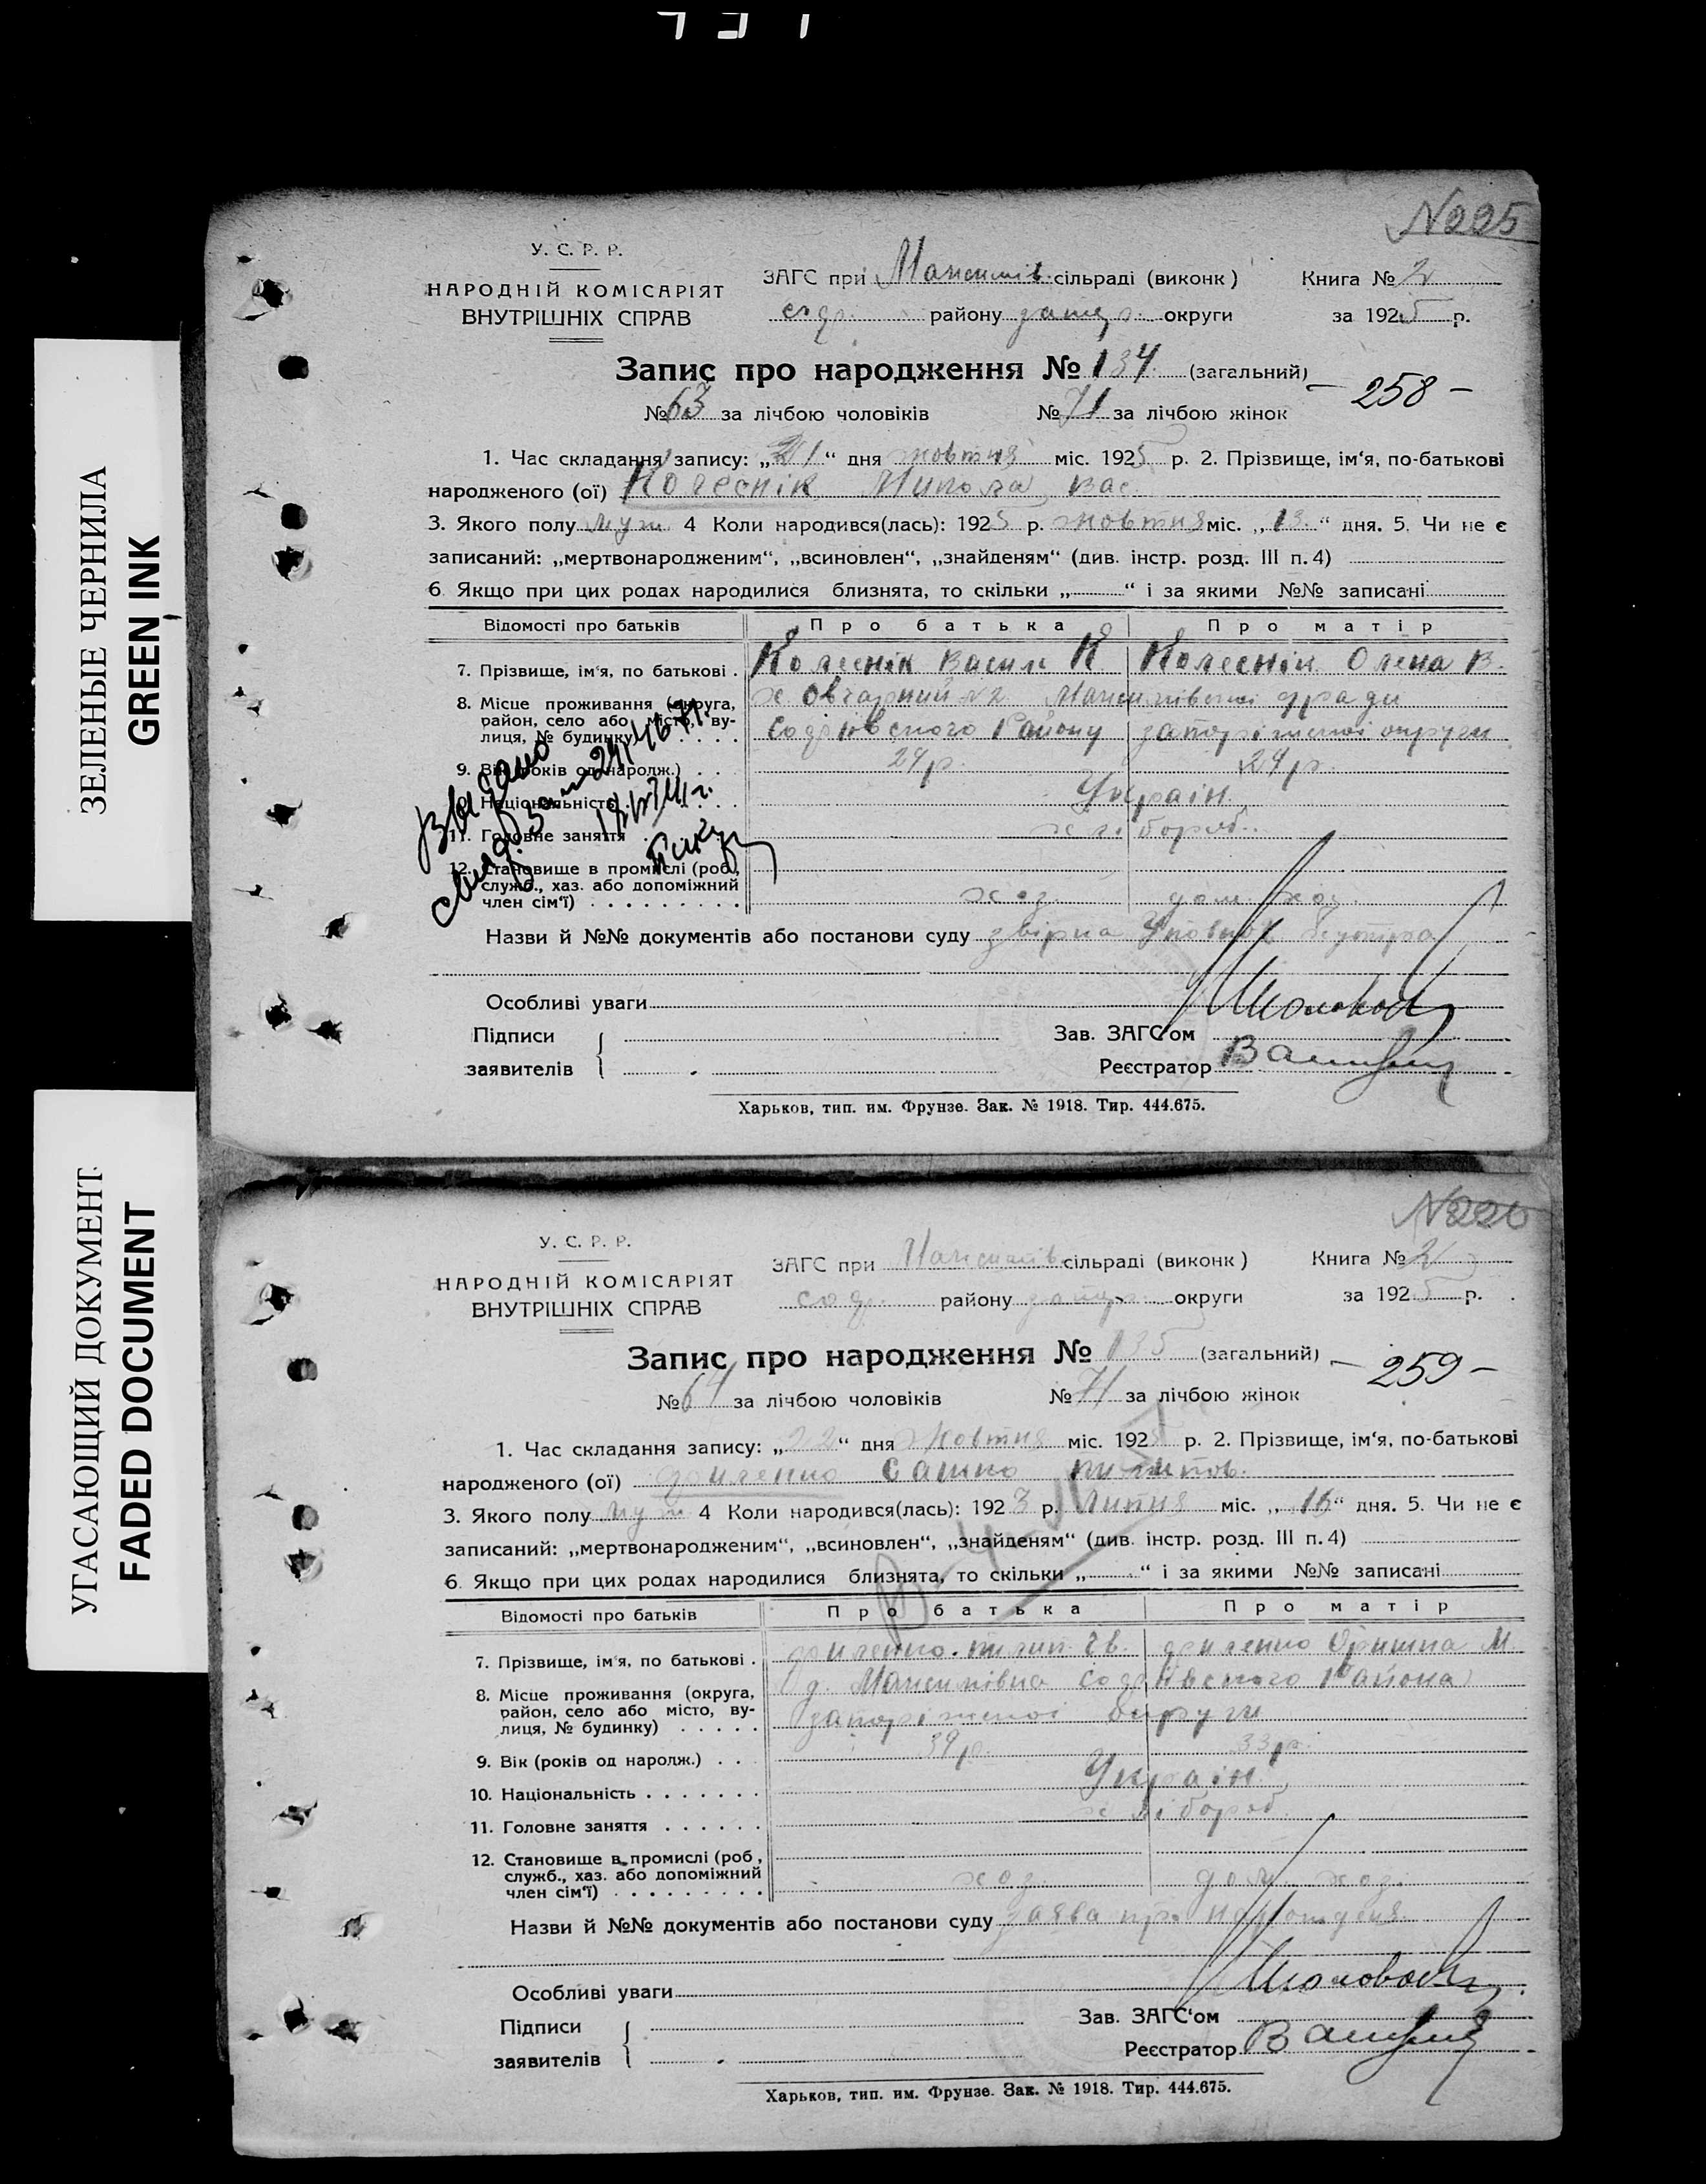 ЗЕЛЕНЫЕ ЧЕРНИЛА
GREEN INK
УГАСАЮЩИЙ ДОКУМЕНТ
FADED DOCUMENT
№225
У. С. Р. Р.
НАРОДНІЙ КОМІСАРІЯТ
ВНУТРІШНІХ СПРАВ
ЗАГС при Максимів. сільраді (виконк)
Книга № 2
району округи
за 1925 р.
Запис про народження № 134 (загальний)
- 258 -
№ 63 за лічбою чоловіків № 71 за лічбою жінок
1. Час складання запису: „21“ дня жовтня міс. 1925 р. 2. Прізвище, ім‘я, по-батькові
народженого (ої) Колеснік Микола Вас.
3. Якого полу муж 4 Коли народився(лась): 1925 р. жовтня міс. „13“ дня. 5. Чи не є
записаний: „мертвонародженим“, „всиновлен“, „знайденям“ (див. інстр. розд. III п. 4)
6. Якщо при цих родах народилися близнята, то скільки „ “ і за якими №№ записані
Відомості про батьків Про батька Про матір
7. Прізвище, ім‘я, по батькові . Колеснік Васил К. Колеснік Олена В.
8. Місце проживання (округа, х Овчарний №2 Максимівської
район, село або місто, ву- Району запоріжської округи
лиця, № будинку)
9. Вік (років од наролж.) . . 24 р. 24 р.
10. Національність Україн.
11. Головне заняття хлібороб.
12. Становище в промислі (роб,
служб., хаз. або допоміжний
член сім‘ї) . . . . . . . . . хоз. дом. хоз.
Видано
Назви й №№ документів або постанови суду
Особливі уваги
Підписи
заявителів
Зав. ЗАГС‘ом
Реєстратор
Харьков, тип. им. Фрунзе. Зак. № 1918. Тир. 444.675.
№226
У. С. Р. Р.
НАРОДНІЙ КОМІСАРІЯТ
ВНУТРІШНІХ СПРАВ
ЗАГС при Максимів. сільраді (виконк)
Книга № 2
району округи
за 1925 р.
Запис про народження № 135 (загальний)
- 259 -
№ 64 за лічбою чоловіків № 71 за лічбою жінок
1. Час складання запису: „22“ дня жовтня міс. 1925 р. 2. Прізвище, ім‘я, по-батькові
народженого (ої) Сашко пилипов.
3. Якого полу муж 4 Коли народився(лась): 1923 р. Липня міс. „16“ дня. 5. Чи не є
записаний: „мертвонародженим“, „всиновлен“, „знайденям“ (див. інстр. розд. III п. 4)
6. Якщо при цих родах народилися близнята, то скільки „ “ і за якими №№ записані
Відомості про батьків Про батька Про матір
7. Прізвище, ім‘я, по батькові . пилип Оришка М.
8. Місце проживання (округа, Максимівка Района
район, село або місто, ву- запоріжської округи
лиця, № будинку) . . . . .
9. Вік (років од наролж.) . . . 39 р. 33 р.
10. Національність . . . . . . . Україн.
11. Головне заняття . . . . . . хлібороб.
12. Становище в промислі (роб,
служб., хаз. або допоміжний
член сім‘ї) . . . . . . . . . хоз. дом. хоз.
Назви й №№ документів або постанови суду заява про народження
Особливі уваги
Підписи
заявителів
Зав. ЗАГС‘ом
Реєстратор
Харьков, тип. им. Фрунзе. Зак. № 1918. Тир. 444.675.